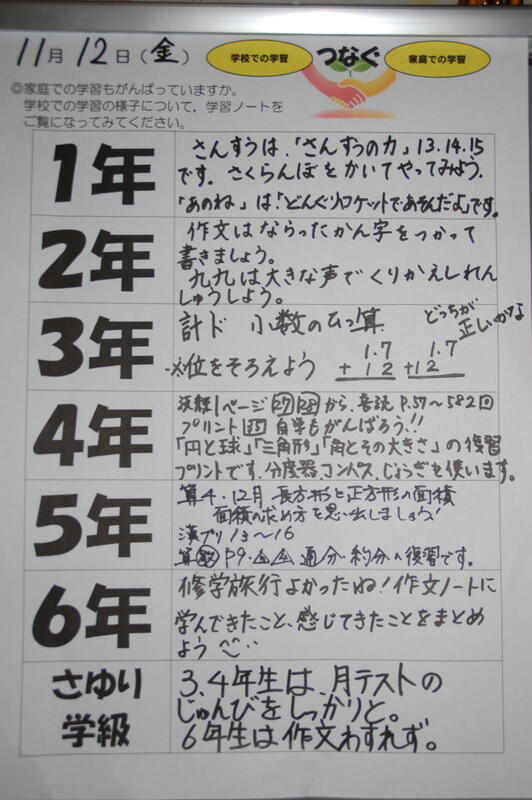 11月12日(金)
学校での学習 つなぐ 家庭での学習
◎家庭での学習もがんばっていますか。
学校での学習の様子について,学習ノートを
ご覧になってみてください。
1年
さんすうは、「さんすうの力」13.14.15
です。さくらんぼをかいてやってみよう.
「あのね」は「どんぐりロケットであそんだよ」です。
2年
作文はならったかん字をつかって
書きましょう。
九九は大きな声でくりかえしれん
しゅうしよう。
3年
計ド 小数のひっ算
どっちが
正しいかな
※位をそろえよう
1.7 1.7
+ 1 2 +1 2
4年
1ページ 27 28 から、音読 P.57〜58 2回
プリント 自学もがんばろう!!
「円と球」「三角形」「角とその大きさ」の復習
プリントです.分度器.コンパス.じょうぎを使います。
5年
算4・12月 長方形と正方形の面積
面積の求め方を思い出しましょう!
漢プリ13〜16
P9・ 通分・約分の復習です。
6年
修学旅行よかったね!作文ノートに
学んできたこと、感じてきたことをまとめ
よう
さゆり
学級
3、4年生は、月テストの
じゅんびをしっかりと。
6年生は作文わすれず。